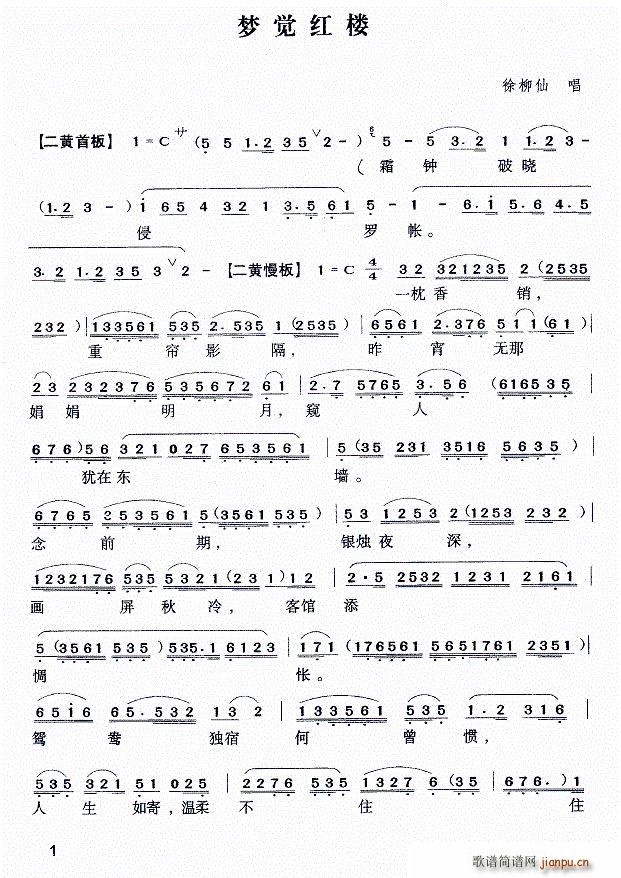 梦觉红楼
徐柳仙 唱
【二黄首板】 1=C サ (5 5 1.2 3 5 ∨ 2 - ) 5 - 5 3.2 1 1.2 3 -
(霜 钟 破 晓
(1.2 3 - ) i 6 5 4 3 2 1 3.5 6 1 5 - 1 - 6.i 5.6 4.5
侵 罗 帐。
3.2 1.2 3 5 3 ∨ 2 - 【二黄慢板】 1=C 4/4 32 321235 2 (2535
一枕 香 销,
232 ) | 133561 535 2.535 1 (2535) | 6561 2.376 511 (61)
重 帘 影 隔, 昨 宵 无那
23 232376 535672 61 | 2.7 5765 3.56 (616535 |
娟 娟 明 月, 窥 人
676) 56 321 027 653561 | 5 (35 231 3516 5635 )
犹在 东 墙。
6765 353561 5 (3561 535) | 53 1253 2 (1253 232 ) |
念 前 期, 银烛 夜 深,
1232176 535 5321 (231) 12 | 2.5 2532 1231 2161
画 屏 秋 冷, 客馆 添
5 (3561 535) 535.1 6123 | 171 (176561 5651761 2351)
惆 怅。
651̇6 65.532 132 | 133561 535 1.2 316 |
鸳 鸯 独宿 何 曾 惯,
535 321 51 025 | 2276 535 1327 6 (35 | 676.) 1
人 生 如寄,温柔 不 住 住
1
歌谱简谱网
jianpu.cn